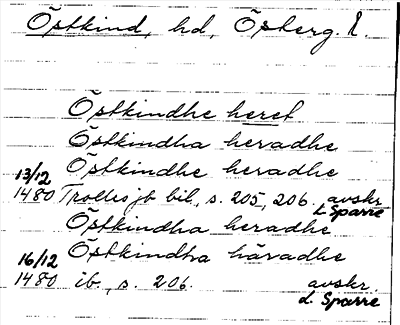 Östkind, hd, Österg. l.
Östkindhe heret
Östkindha heradhe
Östkindhe heradhe
13/12
1480 Trolles jb bil., s. 205, 206. avskr.
L. Sparre
Östkindha heradhe
Östkindha häradhe
16/12
1480 ib., s. 206. avskr.
L. Sparre